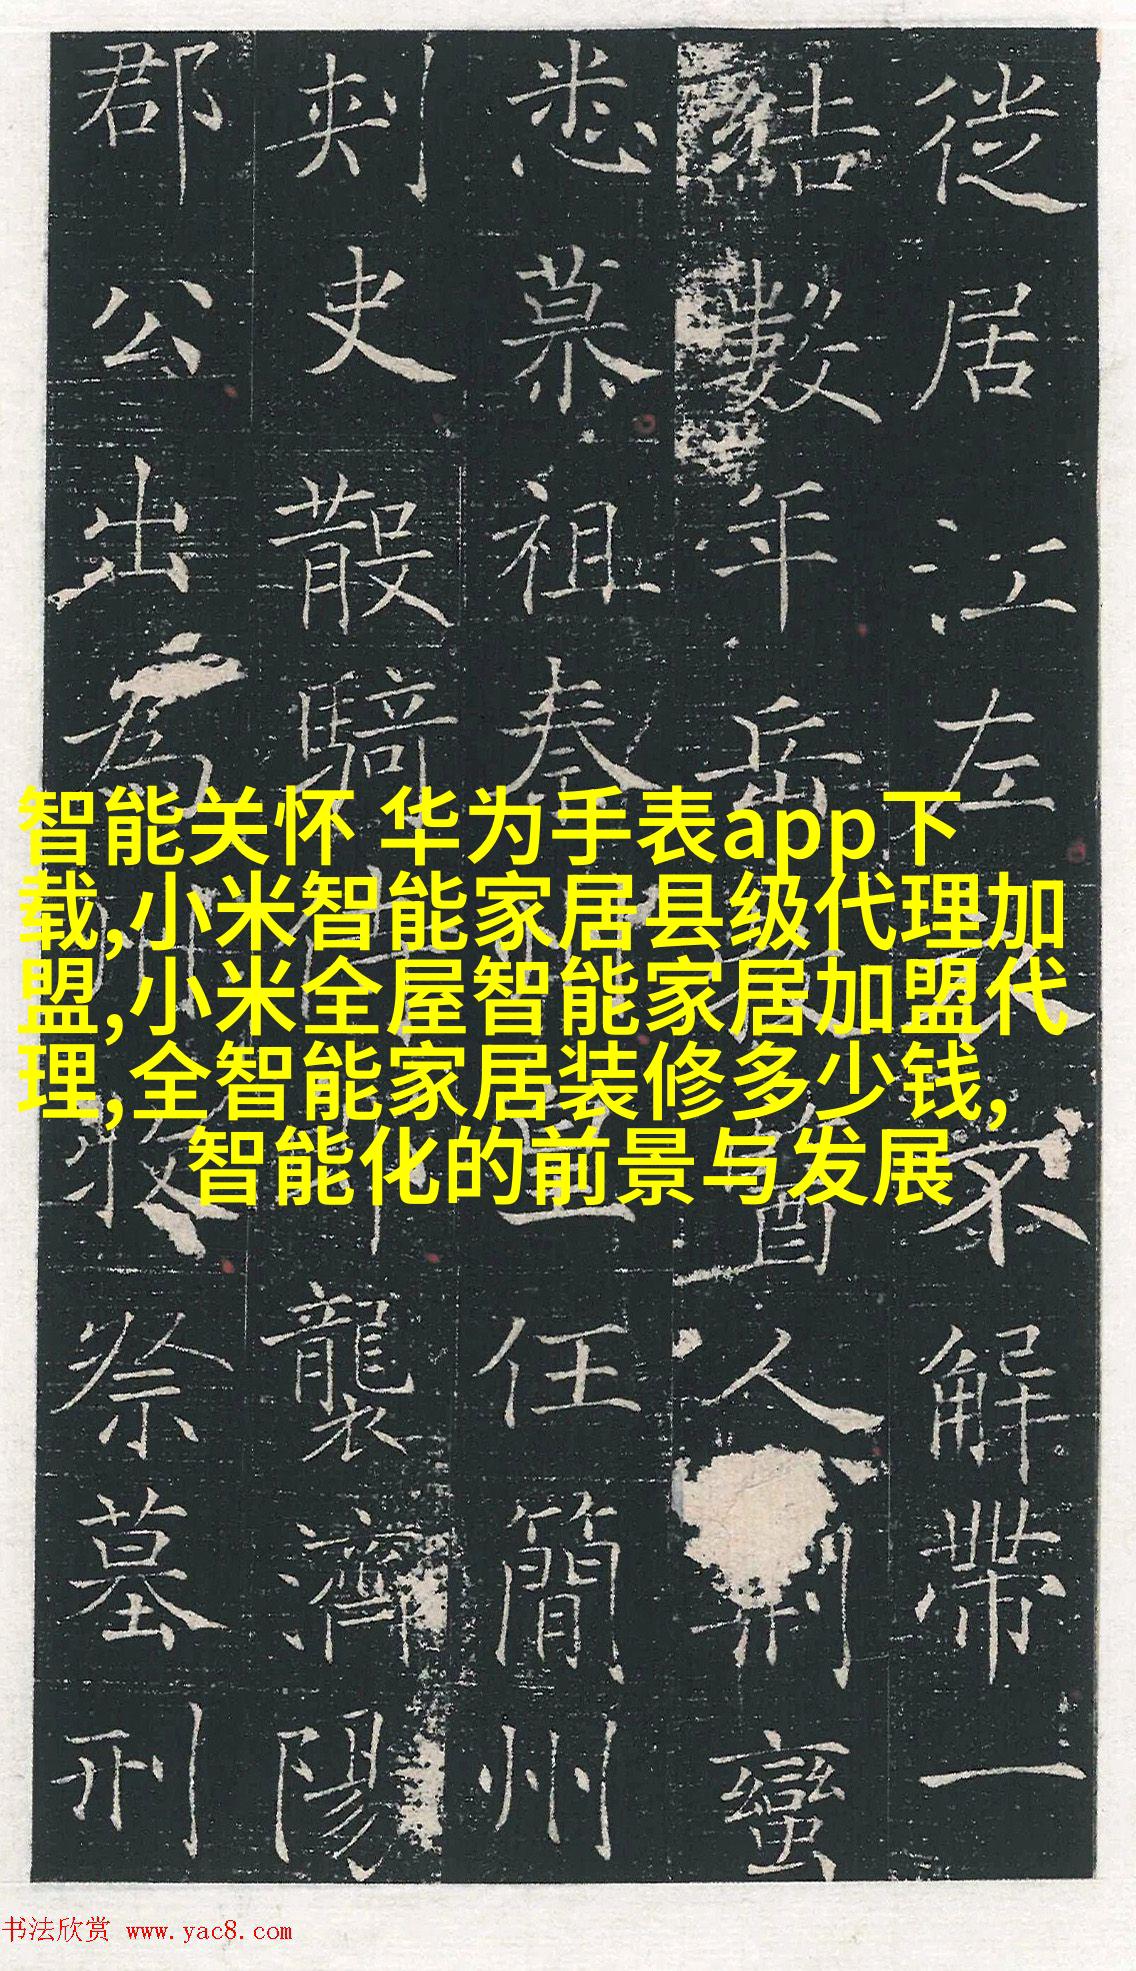 徙居江左不解帶一
結數年岳人制蠻
悉慕祖奉任簡州
刺史散騎襲濟陽
郡公出為祭墓刑
智能关怀 华为手表app下
载,小米智能家居县级代理加
盟,小米全屋智能家居加盟代
理,全智能家居装修多少钱,
智能化的前景与发展
书法欣赏 www.yac8.com